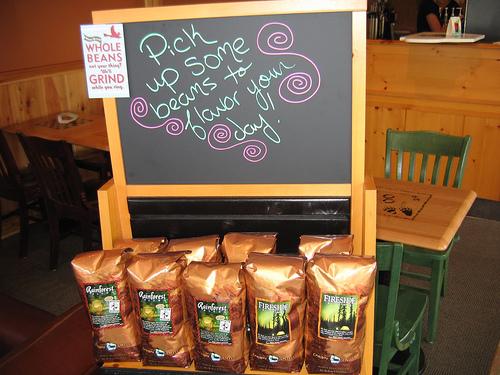 WHOLE
BEANS
not your thing?
We'll
GRIND
while you ring.
Pick
up some
beans to
flavor your
day!
Rainforest
Rainforest
Rainforest
FIRESIDE
FIRESIDE